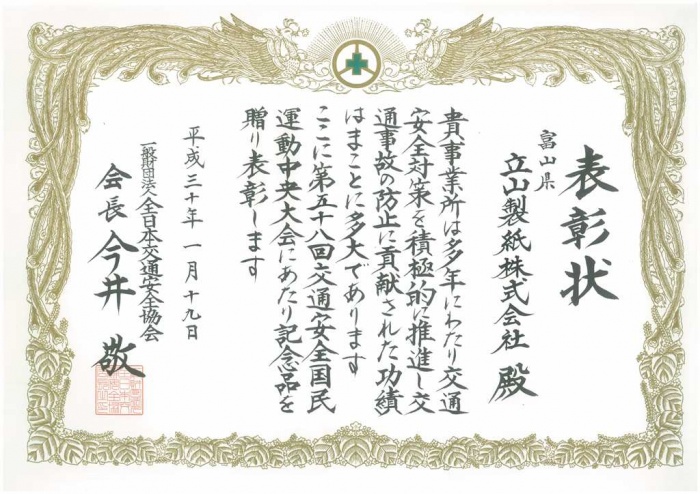 表彰状
富山県
立山製紙株式会社 殿
貴事業所は多年にわたり交通
安全対策を積極的に推進し交
通事故の防止に貢献された功績
はまことに多大であります
ここに第五十八回交通安全国民
運動中央大会にあたり記念品を
贈り表彰します
平成三十年一月十九日
一般財団法人全日本交通安全協会
会長 今井 敬